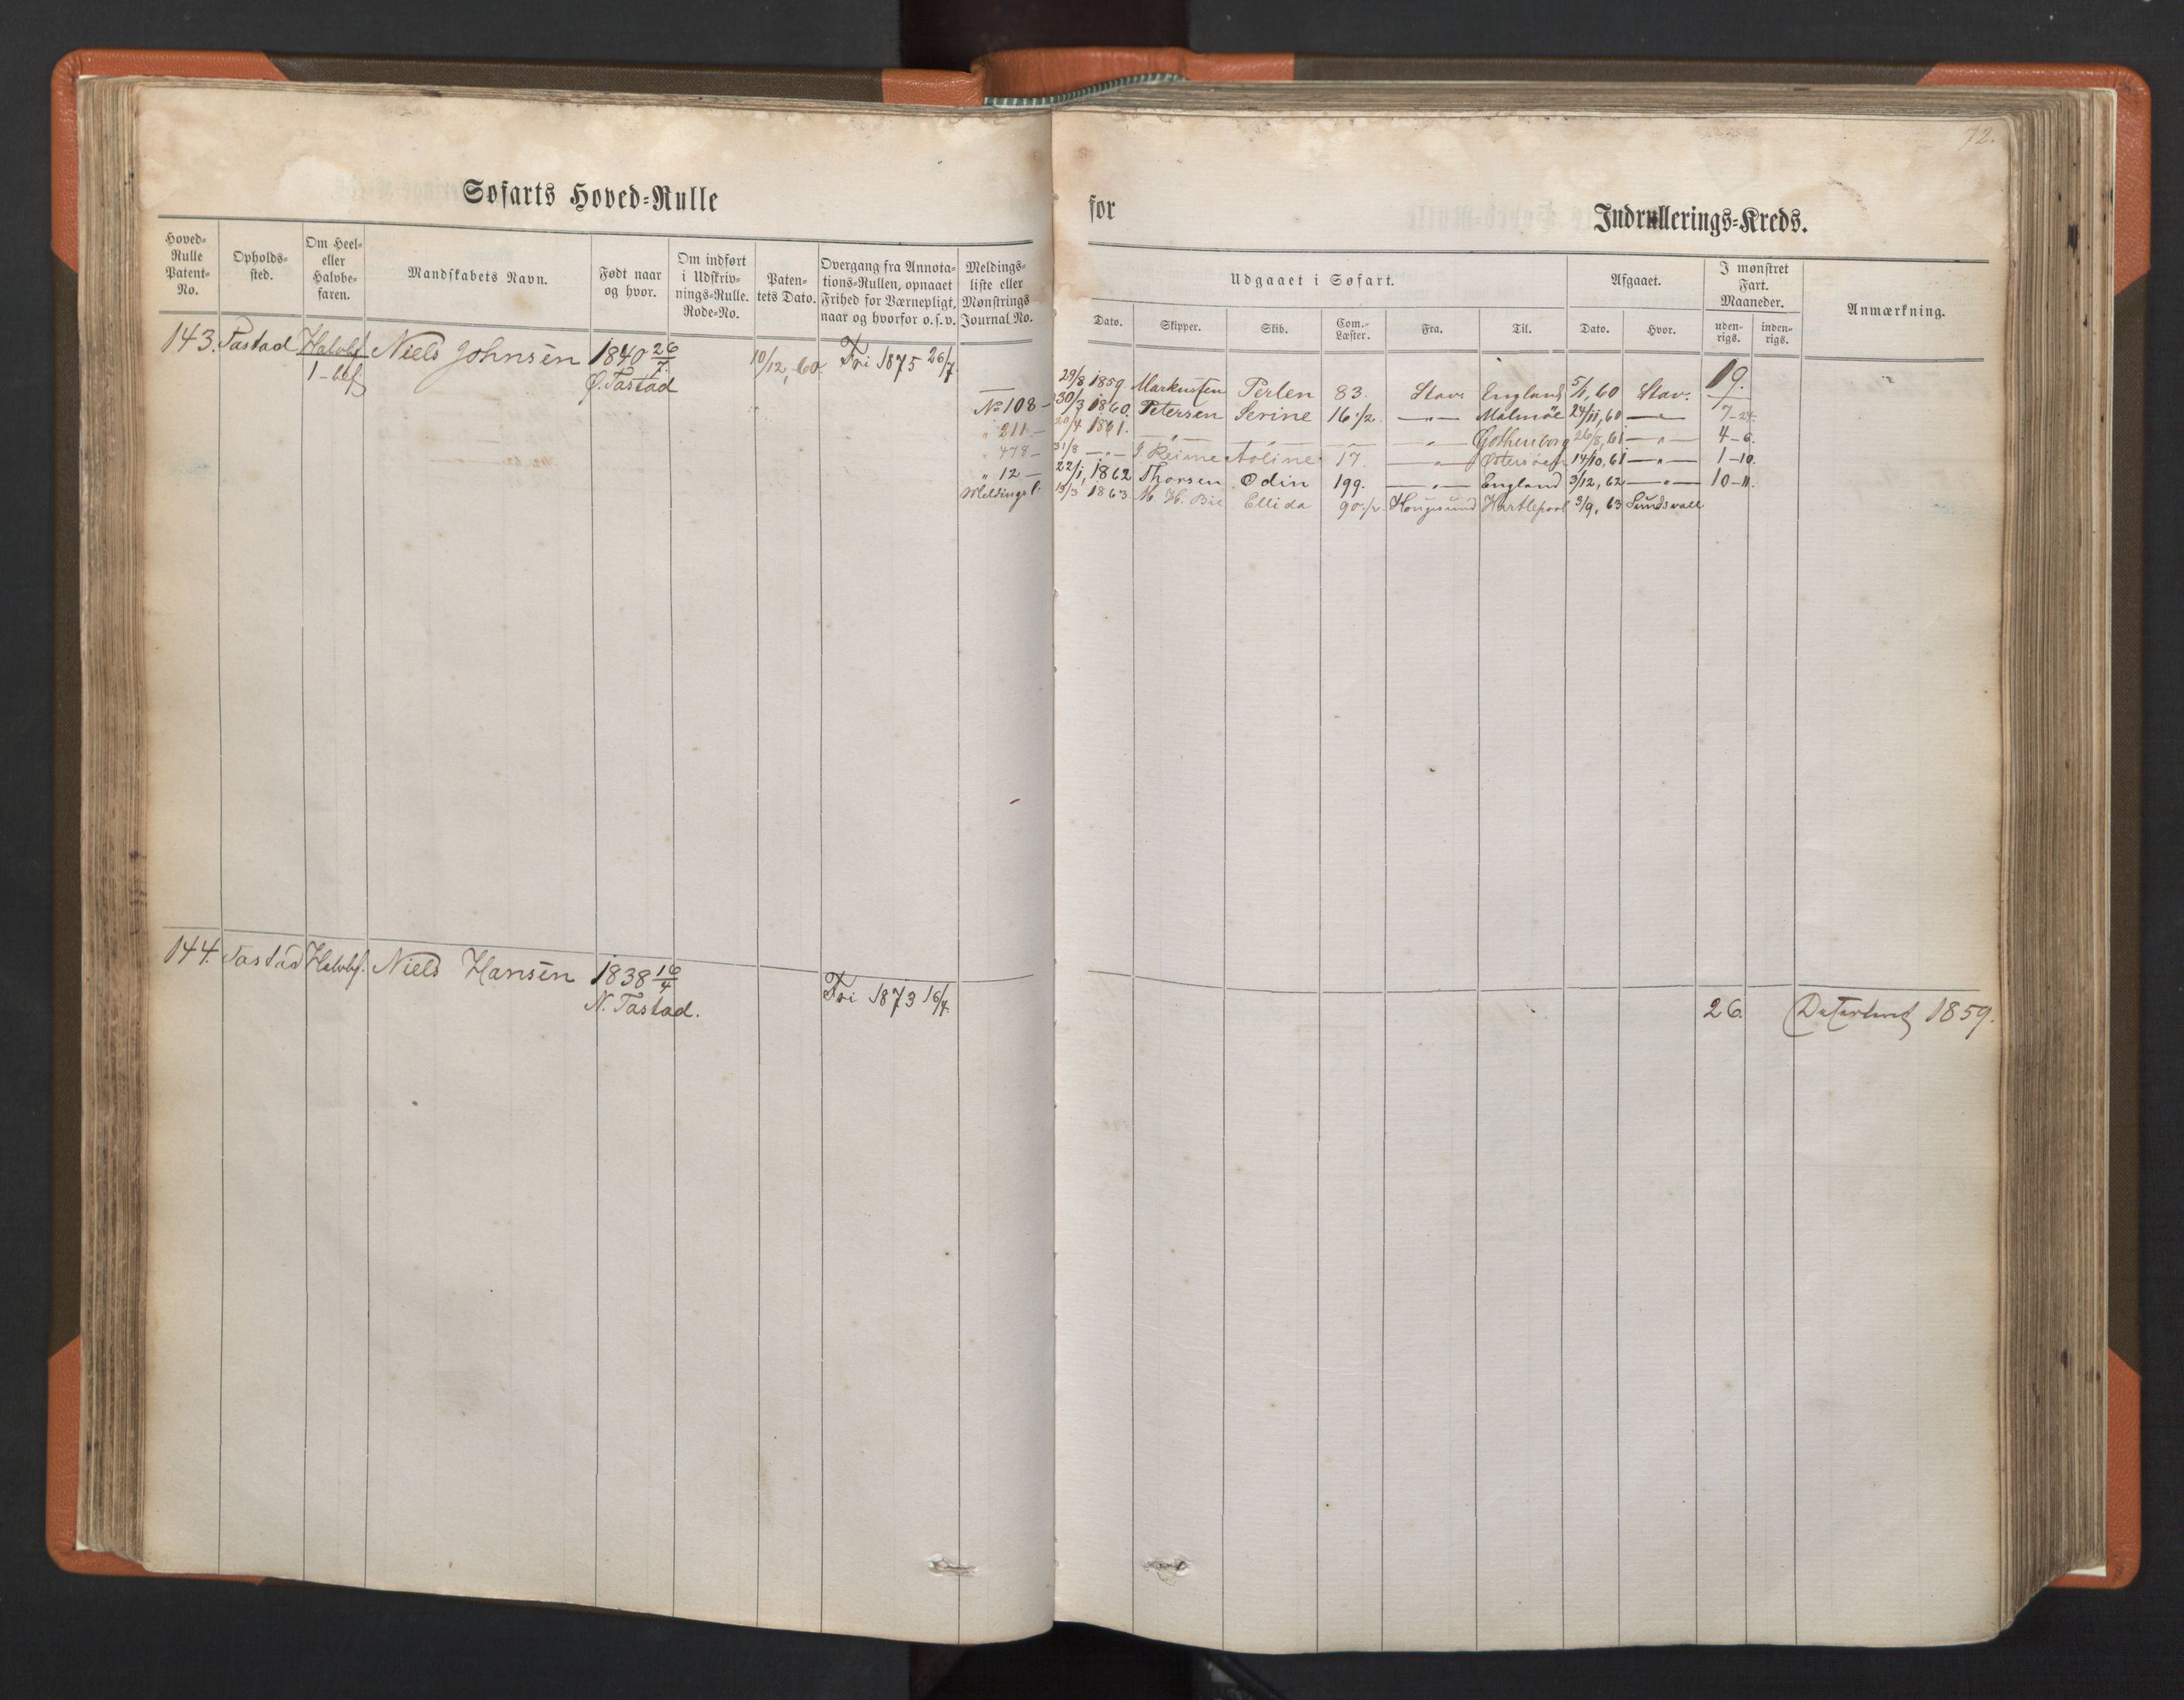 72.
Søfarts Hoved-Rulle
for
Indrullerings-Kreds.
Hoved-
Rulle
Patent-
No.
Opholds-
sted.
Om Heel-
eller
Halvbe-
faren.
Mandskabets Navn.
Født naar
og hvor.
Om indført
i Udskriv-
nings-Rulle.
Rode-No.
Paten-
tets Dato.
Overgang fra Annota-
tions-Rullen, opnaaet
Frihed for Værnepligt,
naar og hvorfor o. s. v.
Meldings-
liste eller
Mønstrings
Journal No.
Udgaaet i Søfart.
Dato.
Skipper.
Skib.
Com.-
Læster.
Fra.
Til.
Afgaaet.
Dato.
Hvor.
I mønstret
Fart.
Maaneder.
uden-
rigs.
inden-
rigs.
Anmærkning.
143. Tastad Halvbf. Niels Johnsen 1840 26/7 10/12, 60. Fri 1875 26/7
1-bef Ø. Tastad
29/8 1859. Markussen Perlen 83. Stav. England 5/1, 60 Stav. 19.
No 108 – 30/3 1860. Petersen Serine 16 1/2 —„— Malmøe 24/11, 60 —„— 7-24.
„ 211 – 20/4 1861. —„— —„— — —„— Gothenborg 26/8, 61 —„— 4-6.
„ 478 – 31/8 —„— J Reime Aoline 17. —„— Østersøen 14/10, 61 —„— 1-10.
„ 12 – 22/1, 1862 Thorsen Odin 199. —„— England 3/12, 62 —„— 10-11.
Meldings l. 13/3 1863. M. H. Bie Ellida 90 1/2 Hougesund Hartlepool 3/9, 63 Sundsvall
144. Tastad Halvbf. Niels Hansen 1838 16/4 Fri 1873 16/4
N. Tastad.
26. 1859.